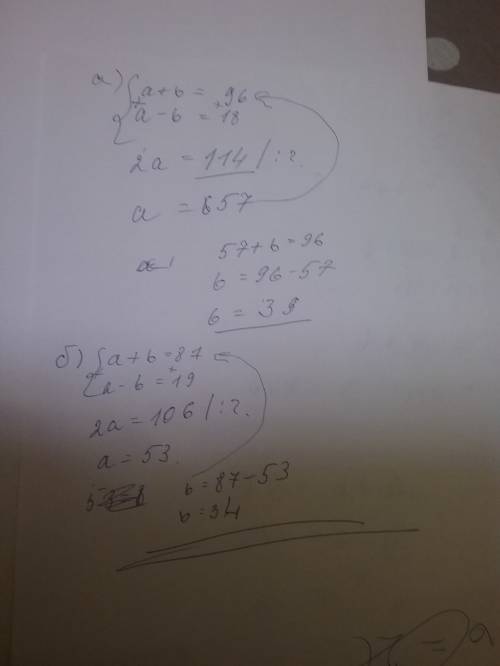 а) { a + b = 96
a - b = 18
2a = 114 / : 2
a = 57
57 + b = 96
b = 96 - 57
b = 39
б) { a + b = 87
a - b = 19
2a = 106 / : 2
a = 53
b = 87 - 53
b = 34